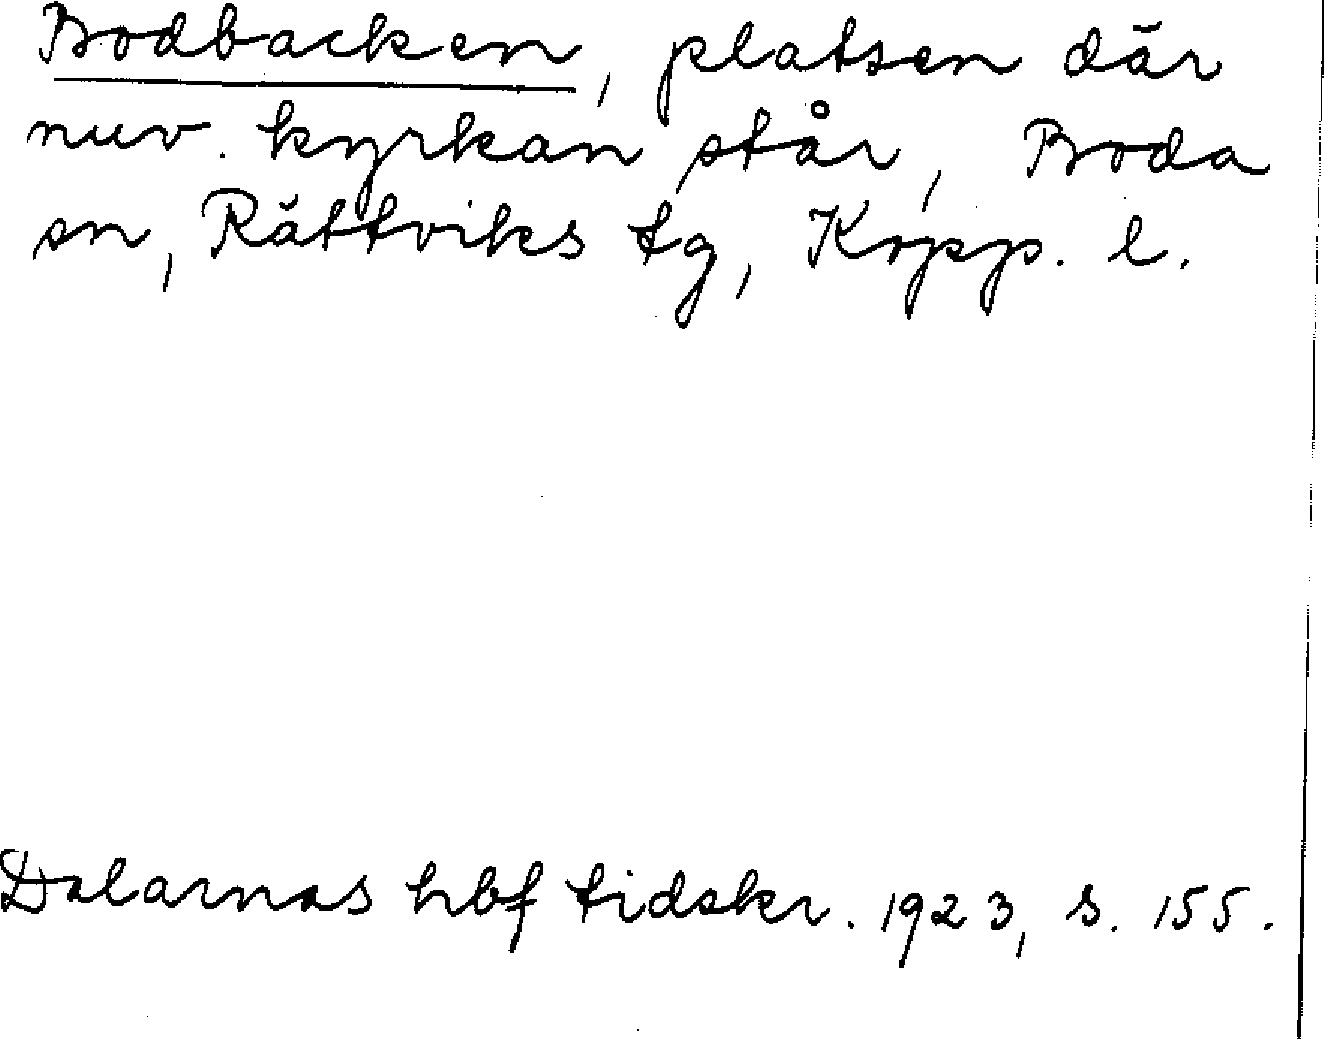 Bodbacken, platsen där
nuv. kyrkan står, Boda
sn, Rättviks tg, Kopp. l.
Dalarnas hbf tidskr. 1923, s. 155.